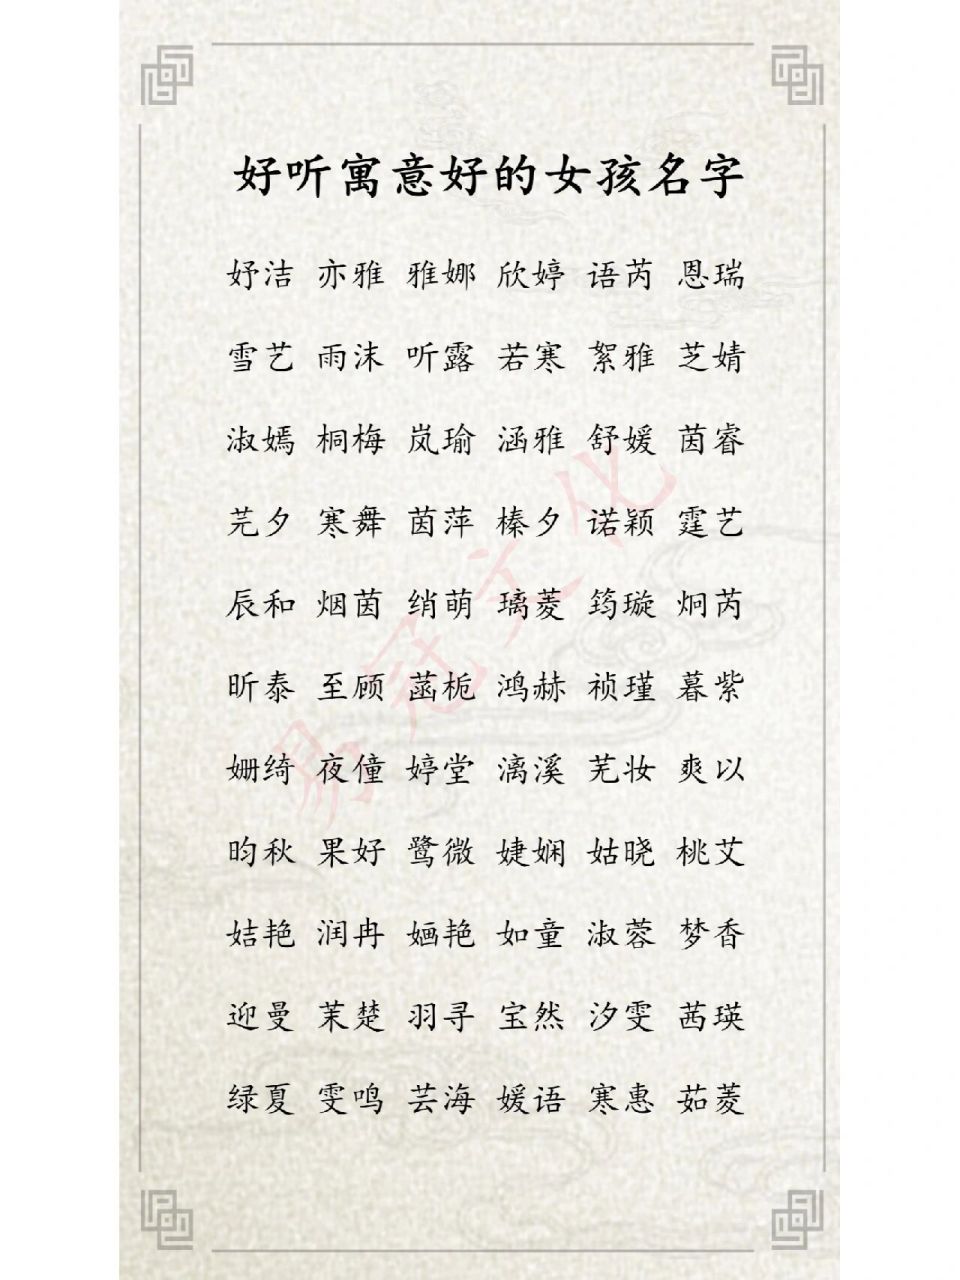 好听寓意好的女孩名字
妤洁 亦雅 雅娜 欣婷 语芮 恩瑞
雪艺 雨沫 听露 若寒 絮雅 芝婧
淑嫣 桐梅 岚瑜 涵雅 舒媛 茵睿
芫夕 寒舞 茵萍 榛夕 诺颖 霆艺
辰和 烟茵 绡萌 璃菱 筠璇 炯芮
昕泰 至顾 菡栀 鸿赫 祯瑾 暮紫
姗绮 夜僮 婷堂 漓溪 芜妆 爽以
昀秋 果好 鹭微 婕娴 姑晓 桃艾
姞艳 润冉 婳艳 如童 淑蓉 梦香
迎曼 茉楚 羽寻 宝然 汐雯 茜瑛
绿夏 雯鸣 芸海 媛语 寒惠 茹菱
易冠文化